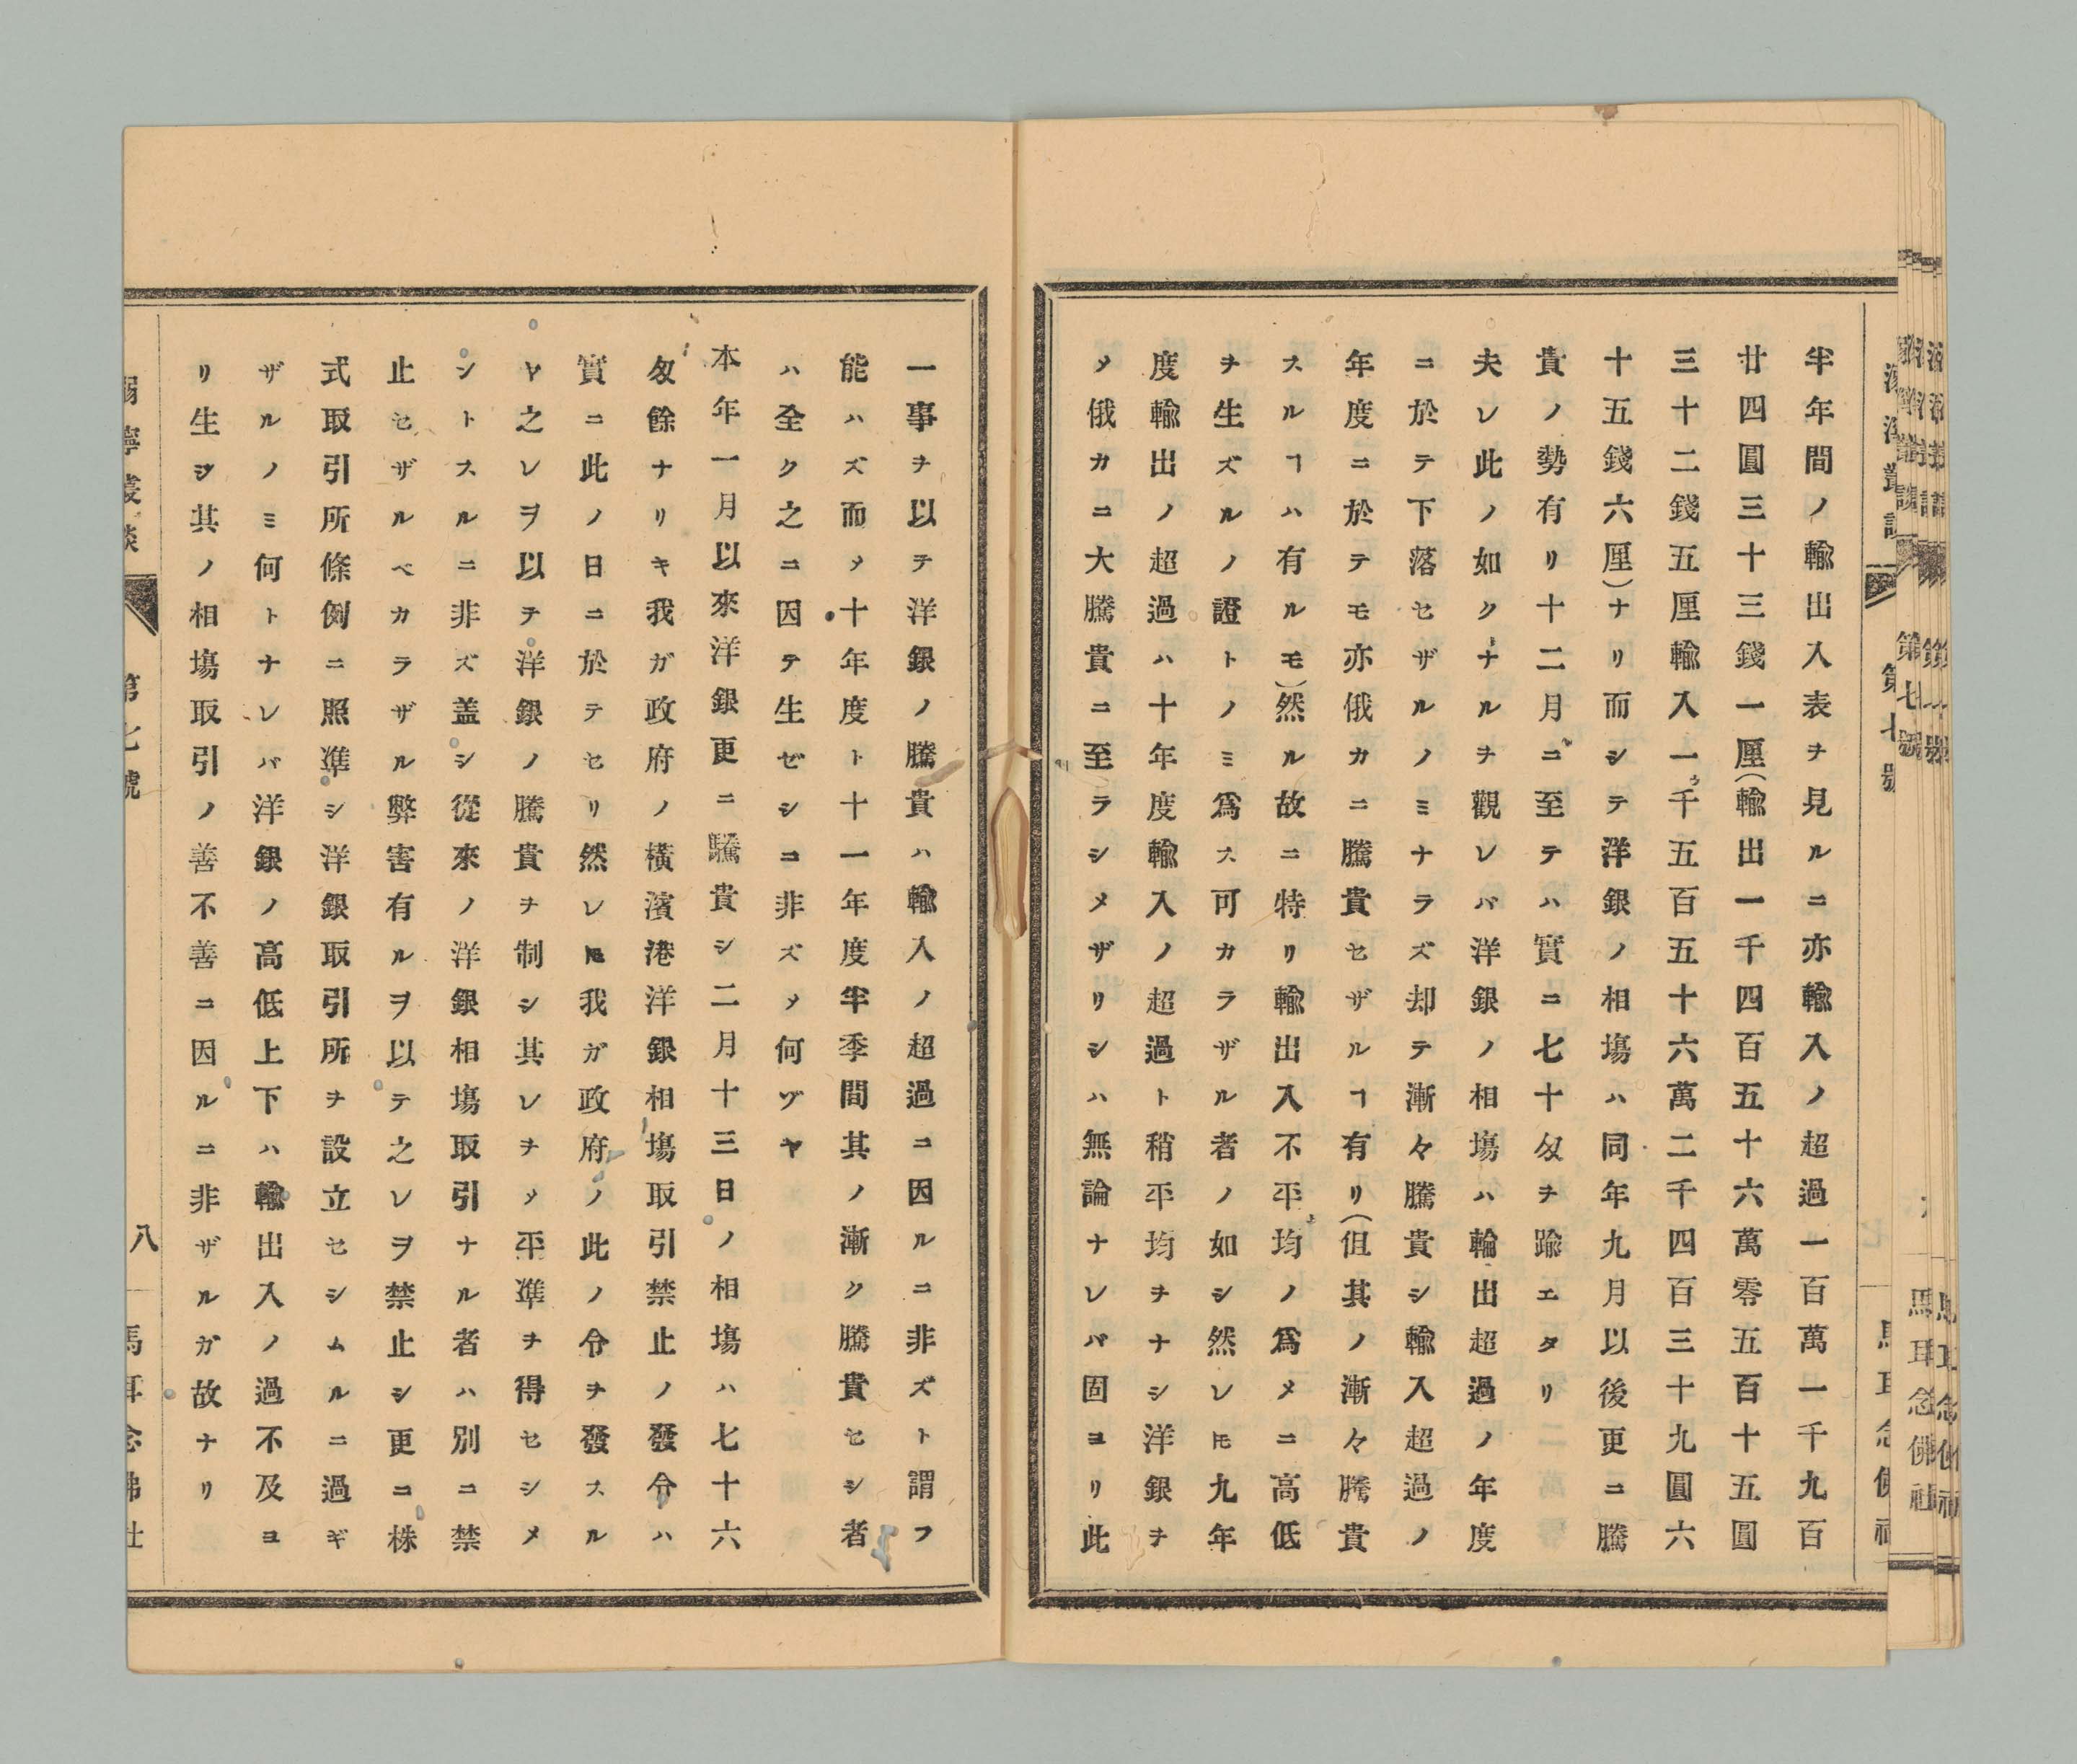 半年間ノ輸出入表ヲ見ルニ亦輸入ノ超過一百萬一千九百
廿四圓三十三錢一厘(輸出一千四百五十六萬零五百十五圓
三十二錢五厘輸入一千五百五十六萬二千四百三十九圓六
十五錢六厘)ナリ而シテ洋銀ノ相塲ハ同年九月以後更ニ騰
貴ノ勢有リ十二月ニ至テハ實ニ七十匁ヲ踰エタリ
夫レ此ノ如クナルヲ觀レバ洋銀ノ相塲ハ輸出超過ノ年度
ニ於テ下落セザルノミナラズ却テ漸々騰貴シ輸入超過ノ
年度ニ於テモ亦俄カニ騰貴セザルヿ有リ(但其ノ漸々騰貴
スルヿハ有ルモ)然ル故ニ特リ輸出入不平均ノ爲メニ高低
ヲ生ズルノ證トノミ爲ス可カラザル者ノ如シ然レ𪜈九年
度輸出ノ超過ハ十年度輸入ノ超過ト稍平均ヲナシ洋銀ヲ
メ俄カニ大騰貴ニ至ラシメザリシハ無論ナレバ固ヨリ此
第七號
一事ヲ以テ洋銀ノ騰貴ハ輸入ノ超過ニ因ルニ非ズト謂フ
能ハズ而メ十年度ト十一年度半季間其ノ漸ク騰貴セシ者
ハ全ク之ニ因テ生ゼシニ非ズメ何ゾヤ
本年一月以來洋銀更ニ騰貴シ二月十三日ノ相塲ハ七十六
匁餘ナリキ我ガ政府ノ橫濱港洋銀相塲取引禁止ノ發令ハ
實ニ此ノ日ニ於テセリ然レ𪜈我ガ政府ノ此ノ令ヲ發スル
ヤ之レヲ以テ洋銀ノ騰貴ヲ制シ其レヲメ平準ヲ得セシメ
ントスルニ非ズ盖シ從來ノ洋銀相塲取引ナル者ハ別ニ禁
止セザルベカラザル弊害有ルヲ以テ之レヲ禁止シ更ニ株
式取引所條例ニ照準シ洋銀取引所ヲ設立セシムルニ過ギ
ザルノミ何トナレバ洋銀ノ高低上下ハ輸出入ノ過不及ヨ
リ生ジ其ノ相塲取引ノ善不善ニ因ルニ非ザルガ故ナリ
第七號
八